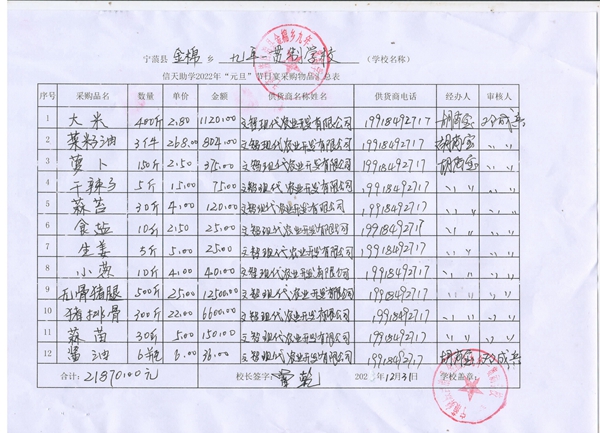 宁蒗县 金棉 乡 九年一贯制学校 （学校名称）
信天助学2022年“元旦”节日宴采购物品汇总表
序号 采购品名 数量 单价 金额 供货商名称姓名 供货商电话 经办人 审核人
1 大米 400斤 2.80 1120.00 文智现代农业开发有限公司 19918492717
2 菜籽油 3件 268.00 804.00 文智现代农业开发有限公司 19918492717
3 萝卜 150斤 2.50 375.00 文智现代农业开发有限公司 19918492717
4 干辣子 5斤 15.00 75.00 文智现代农业开发有限公司 19918492717 〃 〃
5 蒜苔 30斤 4.00 120.00 文智现代农业开发有限公司 19918492717 〃 〃
6 食盐 10斤 2.50 25.00 文智现代农业开发有限公司 19918492717 〃 〃
7 生姜 5斤 5.00 25.00 文智现代农业开发有限公司 19918492717 〃 〃
8 小葱 10斤 4.00 40.00 文智现代农业开发有限公司 19918492717 〃 〃
9 无骨猪腿 500斤 25.00 12500.00 文智现代农业开发有限公司 19918492717 〃 〃
10 猪排骨 300斤 22.00 6600.00 文智现代农业开发有限公司 19918492717 〃 〃
11 蒜苗 30斤 5.00 150.00 文智现代农业开发有限公司 19918492717 〃 〃
12 酱油 6瓶 6.00 36.00 文智现代农业开发有限公司 19918492717
合计：21870.00元 校长签字： 12月31日 学校盖章：